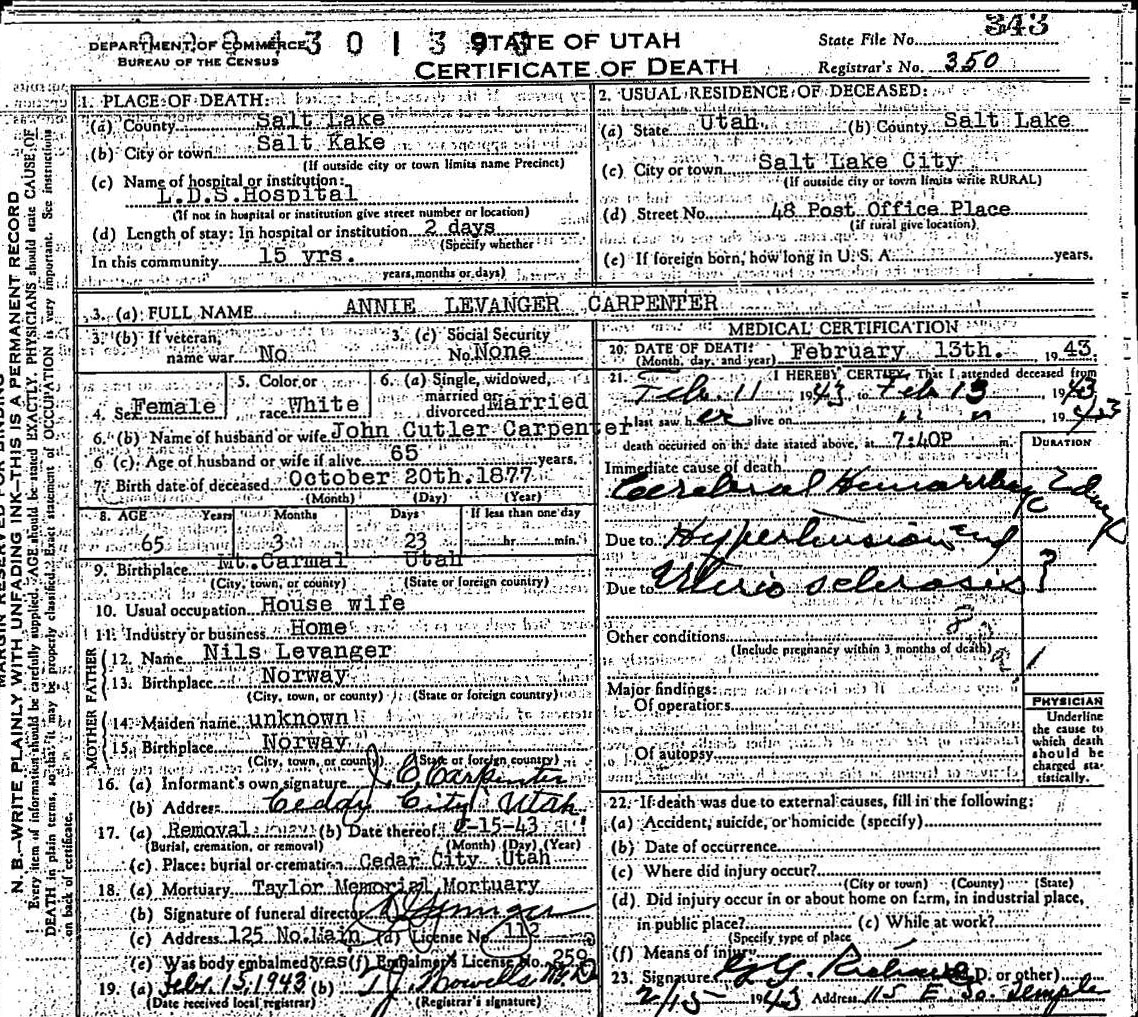 DEPARTMENT OF COMMERCE
BUREAU OF THE CENSUS
STATE OF UTAH
CERTIFICATE OF DEATH
State File No. 343
Registrar's No. 350
MARGIN RESERVED FOR BINDING
N. B.—WRITE PLAINLY WITH UNFADING INK—THIS IS A PERMANENT RECORD
Every item of information should be carefully supplied. AGE should be stated EXACTLY. PHYSICIANS should state CAUSE OF
DEATH in plain terms, so that it may be properly classified. Exact statement of OCCUPATION is very important. See instructions
on back of certificate.
1. PLACE OF DEATH:
(a) County Salt Lake
(b) City or town Salt Kake
(If outside city or town limits name Precinct)
(c) Name of hospital or institution:
L.D.S.Hospital
(If not in hospital or institution give street number or location)
(d) Length of stay: In hospital or institution 2 days
(Specify whether
In this community 15 yrs.
years, months or days)
2. USUAL RESIDENCE OF DECEASED:
(a) State Utah (b) County Salt Lake
(c) City or town Salt Lake City
(If outside city or town limits write RURAL)
(d) Street No. 48 Post Office Place
(if rural give location)
(e) If foreign born, how long in U. S. A. years.
3. (a) FULL NAME ANNIE LEVANGER CARPENTER
3. (b) If veteran, name war No
3. (c) Social Security No. None
4. Sex Female
5. Color or race White
6. (a) Single, widowed, married or divorced Married
6. (b) Name of husband or wife John Cutler Carpenter
6 (c). Age of husband or wife if alive 65 years.
7. Birth date of deceased October 20th.1877
(Month) (Day) (Year)
8. AGE Years Months Days If less than one day
65 3 23 hr. min.
9. Birthplace Mt.Carmal Utah
(City, town, or county) (State or foreign country)
10. Usual occupation House wife
11. Industry or business Home
FATHER
12. Name Nils Levanger
13. Birthplace Norway
(City, town, or county) (State or foreign country)
MOTHER
14. Maiden name unknown
15. Birthplace Norway
(City, town, or county) (State or foreign country)
16. (a) Informant's own signature J C Carpenter
(b) Address City Utah
17. (a) Removal (b) Date thereof -15-43
(Burial, cremation, or removal) (Month) (Day) (Year)
(c) Place: burial or cremation Cedar City Utah
18. (a) Mortuary Taylor Memorial Mortuary
(b) Signature of funeral director
(c) Address 125 No.Main (d) License No. 112
(e) Was body embalmed yes (f) Embalmer's License No. 259
19. (a) Febr. 15, 1943 (b) M. D.
(Date received local registrar) (Registrar's signature)
MEDICAL CERTIFICATION
20. DATE OF DEATH: February 13th. 1943.
(Month, day, and year)
21. I HEREBY CERTIFY, That I attended deceased from
Feb. 11 1943 to Feb 13 1943
I last saw her alive on " " 1943
death occurred on the date stated above, at 7:40P m.
DURATION
Immediate cause of death
Cerebral Hemorrhage 2 days
Due to Hypertension and
Due to sclerosis ?
Other conditions
(Include pregnancy within 3 months of death)
Major findings:
Of operations
Of autopsy
PHYSICIAN
Underline
the cause to
which death
should be
charged sta-
tistically.
22. If death was due to external causes, fill in the following:
(a) Accident, suicide, or homicide (specify)
(b) Date of occurrence
(c) Where did injury occur?
(City or town) (County) (State)
(d) Did injury occur in or about home on farm, in industrial place,
in public place? (e) While at work?
(Specify type of place
(f) Means of injury
23. Signature G. G. Richards D. or other)
2/15 1943 Address 115 E. So. Temple